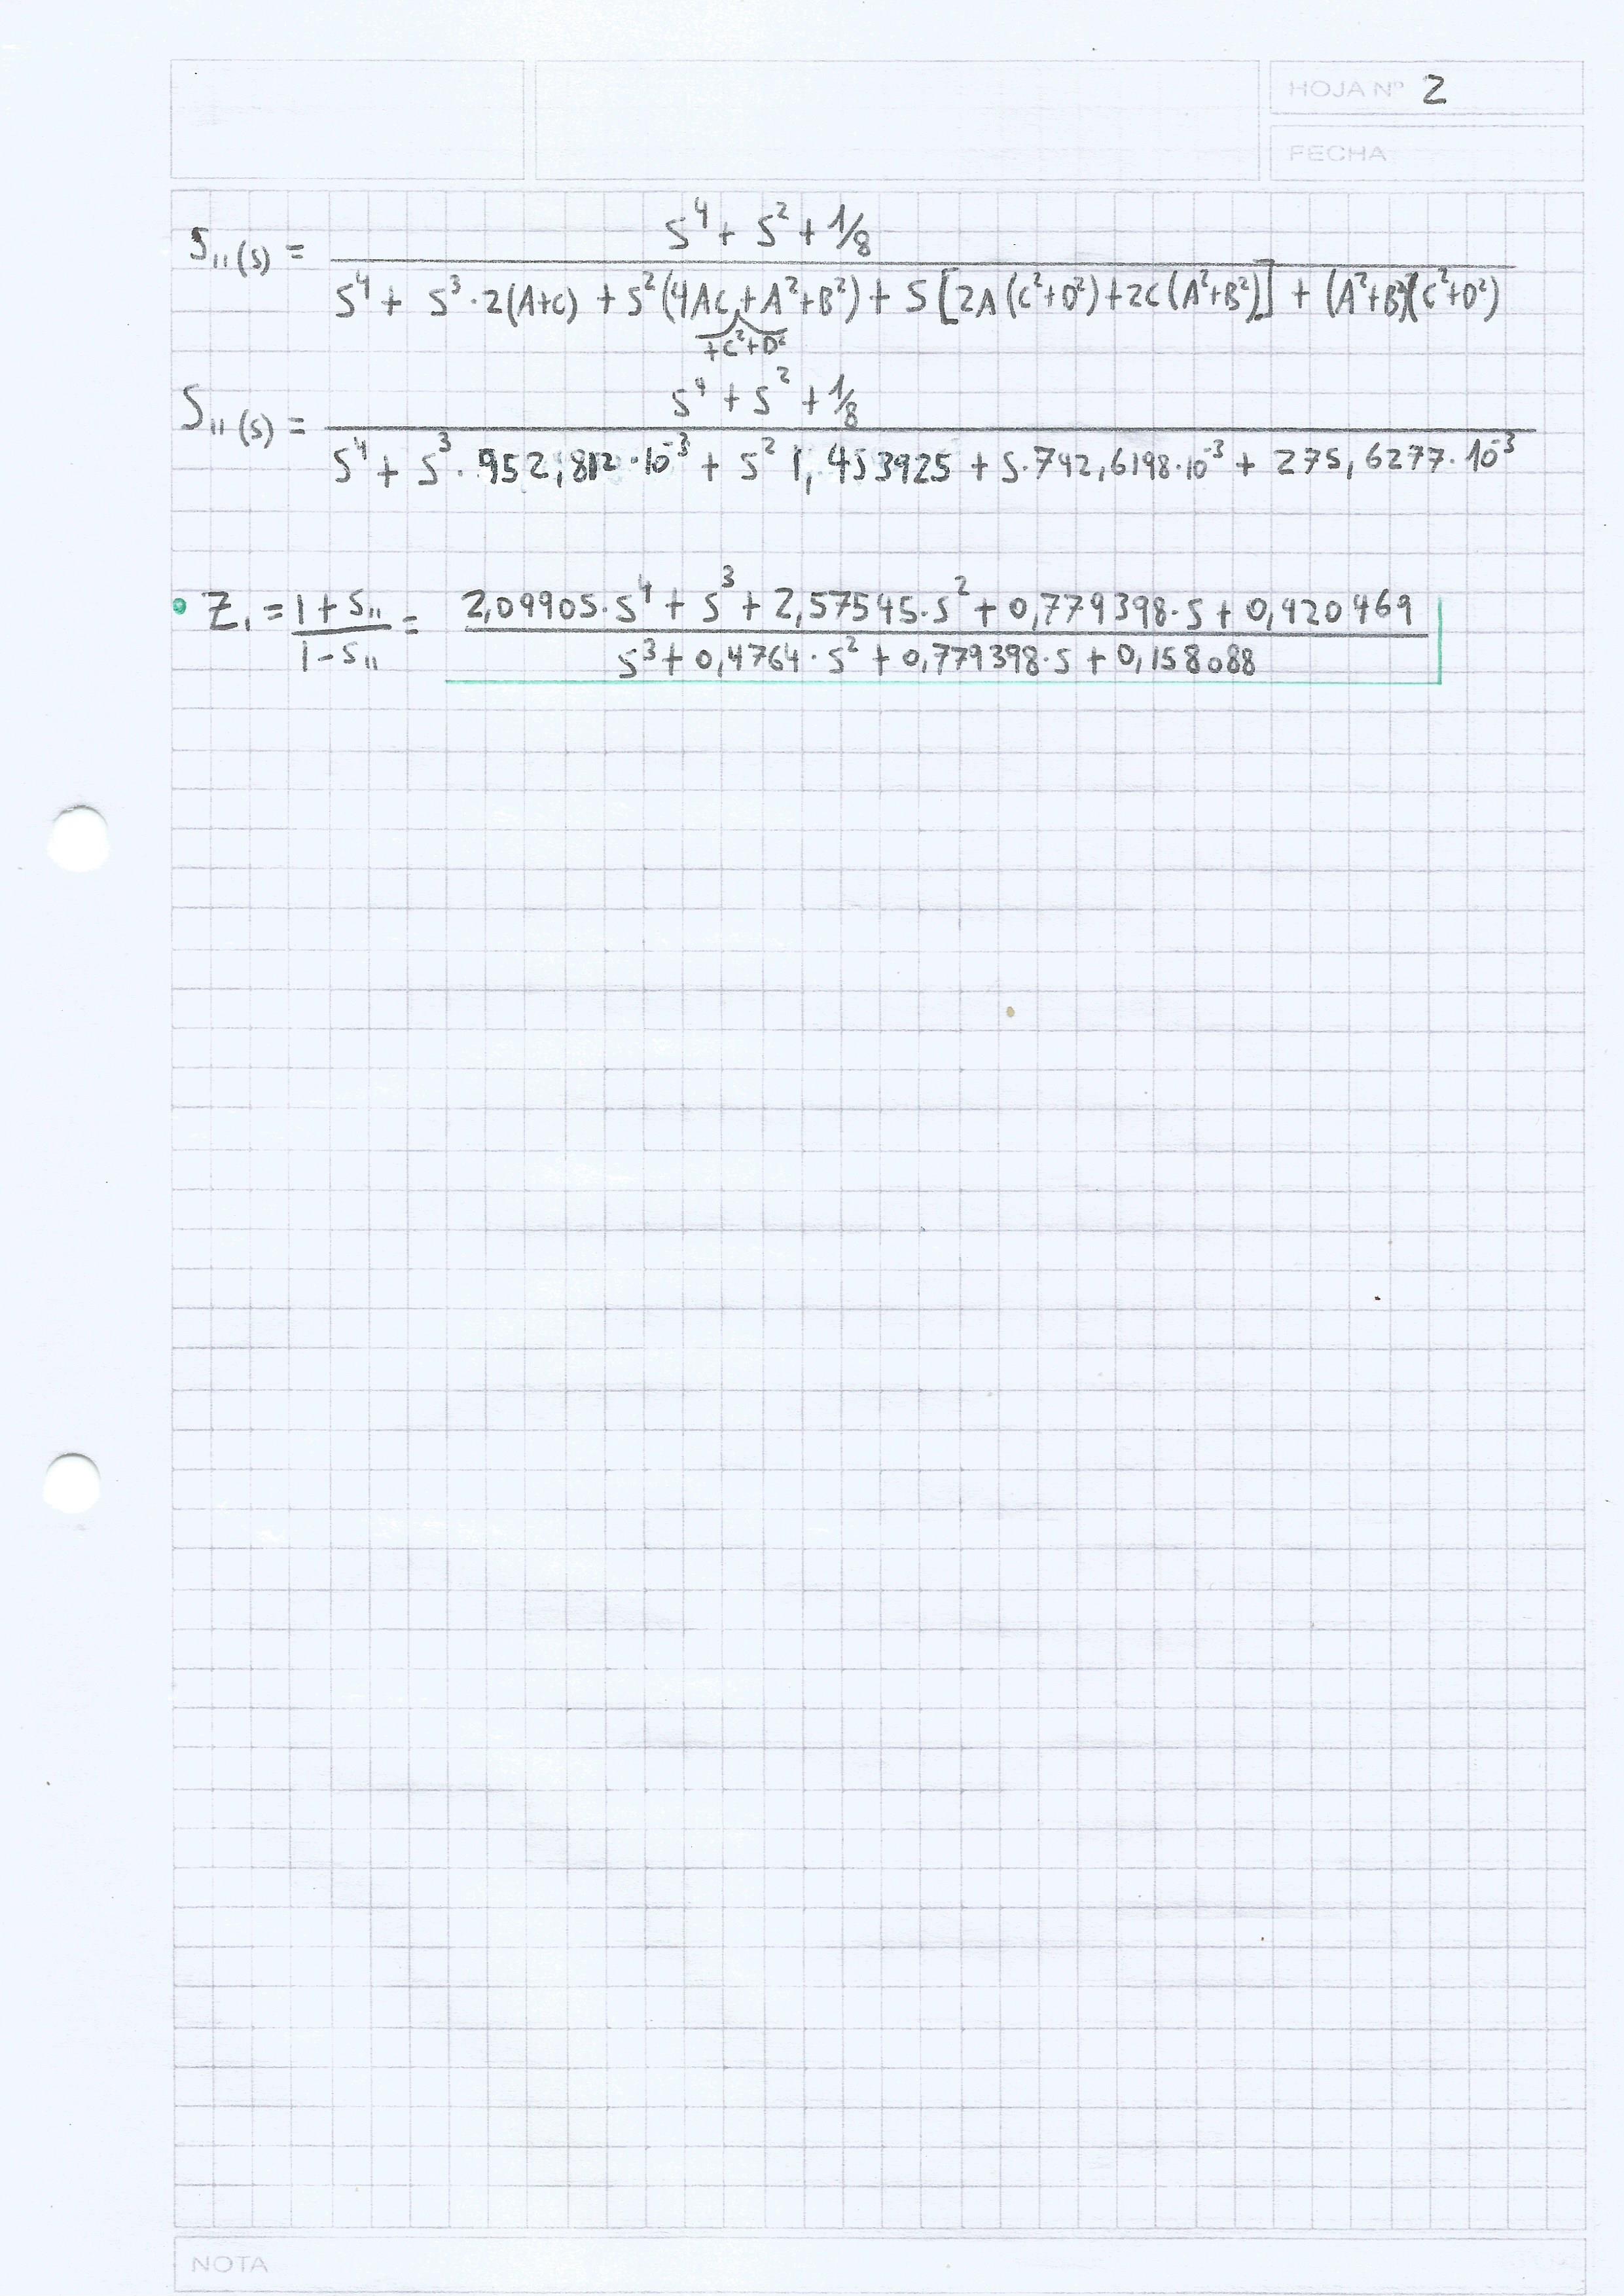 HOJA Nº 2
FECHA
S₁₁(s) = (s⁴ + s² + 1/8) / (s⁴ + s³·2(A+C) + s²(4AC + A²+B² +C²+D²) + s[2A(C²+D²)+2C(A²+B²)] + (A²+B²)(C²+D²))
S₁₁(s) = (s⁴ + s² + 1/8) / (s⁴ + s³·952,812·10⁻³ + s² 1,453925 + s·742,6198·10⁻³ + 275,6277·10⁻³)
• Z₁ = (1+S₁₁)/(1-S₁₁) = (2,09905·s⁴ + s³ + 2,57545·s² + 0,779398·s + 0,420469) / (s³ + 0,4764·s² + 0,779398·s + 0,158088)
NOTA